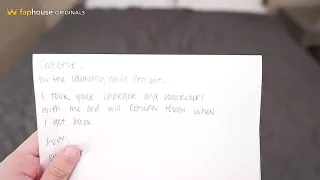 faphouse ORIGINALS
Sweetie,
Do the laundry while I'm out.
I took your charger and underwear
with me and will return them when
I get back